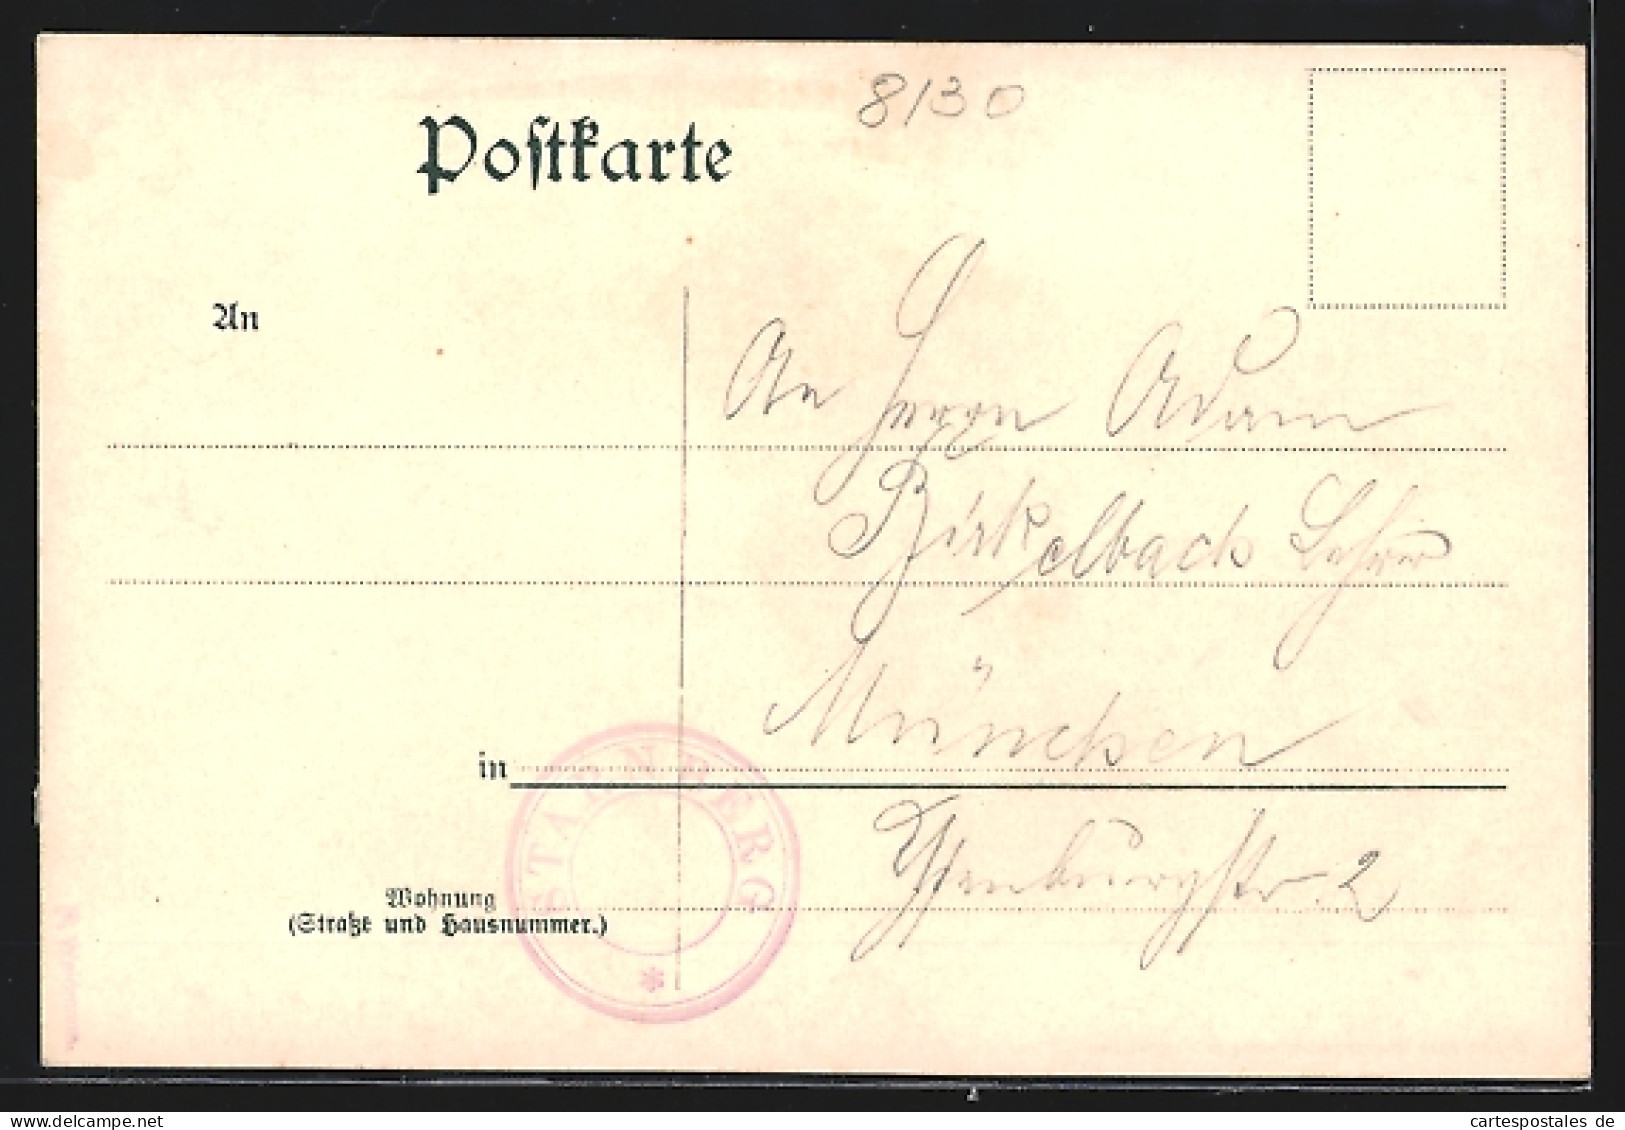 8130
Postkarte
An
An Herrn Adam
Birkelbach Lehrer
München
in
STARNBERG
*
Wohnung
(Straße und Hausnummer.)
2
www.delcampe.net
cartespostales de